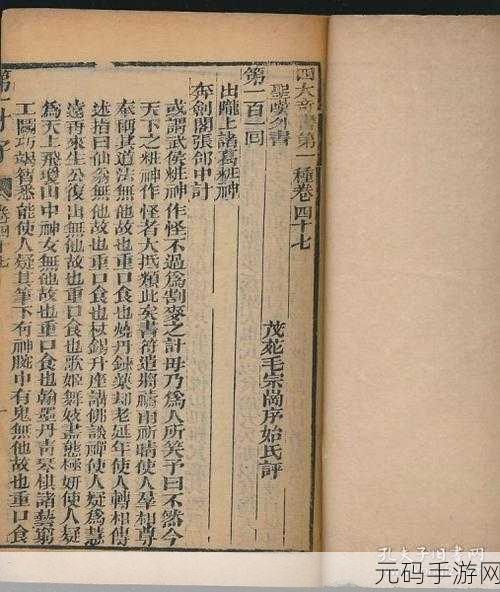 四大奇書第一種卷四十七
聖嘆外書
茂苑毛宗崗序始氏評
第一百一回
出隴上諸葛粧神
奔劍閣張郃中計
或謂武侯粧神作怪不過爲割麥之計毋乃爲人所笑予曰不然今
天下之粧神作怪者大抵類此矣書符遣將禱雨祈晴使人羣相尊
奉稱其道法無他故也重口食也燒丹鍊藥却老延年使人轉相傳
述指曰仙翁無他故也重口食也杖錫升座講佛談禪使人疑爲慧
遠再來生公復出無他故也重口食也歌姬舞妓盡態極妍使人疑
爲天上飛瓊山中神女無他故也重口食也翰墨丹青琴棋諸藝窮
工鬪巧競智悉能使人疑其筆下有神腕中有鬼無他故也重口食
第一才子
卷四十七
孔夫子旧书网
元码手游网